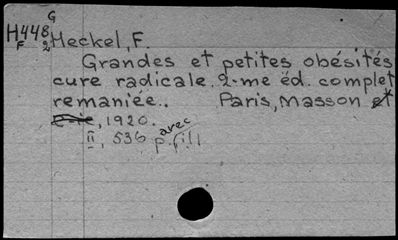 G
H448
F 2
Heckel, F.
Grandes et petites obésités
cure radicale. 2-me éd. complet
remaniée.. Paris, Masson et
Cie, 1920.
II, 536 p. avec fill